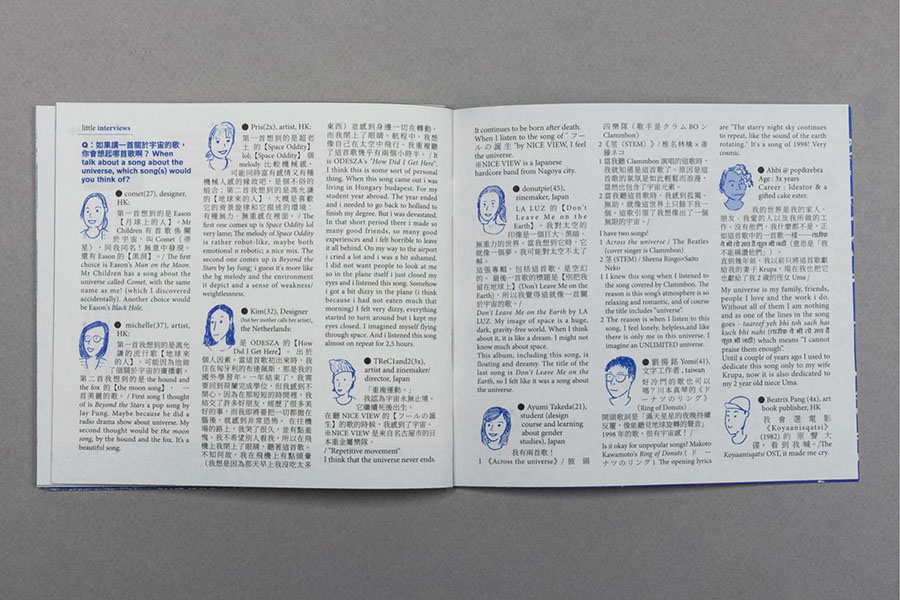 little interviews
Q：如果講一首關於宇宙的歌，
你會想起哪首歌啊？ When
talk about a song about the
universe, which song(s) would
you think of?
● comet(27), designer,
HK:
第一首想到的是 Eason
【月球上的人】。Mr
Children 有首歌係關
於宇宙，叫 Comet（帶
星），同我同名！無意中發現。
還有 Eason 的【黑洞】。/ The first
choice is Eason's Man on the Moon.
Mr Children has a song about the
universe called Comet, with the same
name as me! (which I discovered
accidentally). Another choice
would be Eason's Black Hole.
● michelle(37), artist,
HK:
第一首我想到的是馮允
謙的流行歌【地球來
的人】，可能因為他做
了個關於宇宙的廣播劇。
第二首我想到的是 the hound and
the fox 的【the moon song】，一
首美麗的歌。/ First song I thought
of is Beyond the Stars a pop song by
Jay Fung. Maybe because he did a
radio drama show about universe. My
second thought would be the moon
song, by the hound and the fox. It's a
beautiful song.
● Pris(2x), artist, HK:
第一首想到的是超老
土的【Space Oddity】
lol; 【Space Oddity】個
melody 比較機械感，
可能同時富有感情又有種
機械人感的緣故吧，是個不俗的
組合；第二首我想到的是馮允謙
的【地球來的人】，大概是喜歡
它的背景旋律和它描述的環境：
有種無力、無重感在裡面。/ The
first one comes up is Space Oddity lol
very lame; The melody of Space Oddity
is rather robot-like, maybe both
emotional n robotic; a nice mix. The
second one comes up is Beyond the
Stars by Jay fung; i guess it's more like
the bg melody and the environment
it depict and a sense of weakness/
weightlessness.
● Kim(32), Designer
(but her mother calls her artist),
the Netherlands:
是 ODESZA 的【How
Did I Get Here】。出於
個人因素。當這首歌初出來時，我
住在匈牙利的布達佩斯，那是我的
國外學習年。一年結束了，我需
要回到荷蘭完成學位，但我感到不
開心。因為在那短短的時間裡，我
結交了許多好朋友，經歷了很多美
好的事，而我即將要把一切都拋在
腦後，就感到非常恐怖。在往機
場的路上，我哭了很久，並有點羞
愧。我不希望別人看我，所以在飛
機上我閉上了眼睛，聽著這首歌。
不知何故，我在飛機上有點頭暈
（我想是因為那天早上我沒吃太多
東西）並感到身邊一切在轉動，
而我閉上了眼睛。航程中，我想
像自己在太空中飛行。我重複聽
了這首歌幾乎有兩個小時半。/ It
is ODESZA's "How Did I Get Here".
I think this is some sort of personal
thing. When this song came out i was
living in Hungary budapest. For my
student year abroad. The year ended
and i needed to go back to holland to
finish my degree. But i was devastated.
In that short period there i made so
many good friends, so many good
experiences and i felt horrible to leave
it all behind. On my way to the airport
i cried a lot and i was a bit ashamed.
I did not want people to look at me
so in the plane itself i just closed my
eyes and i listened this song. Somehow
i got a bit dizzy in the plane (i think
because i had not eaten much that
morning) I felt very dizzy, everything
started to turn around but i kept my
eyes closed. I imagined myself flying
through space. And i listened this song
almost on repeat for 2,5 hours.
● TReC1and2(3x),
artist and zinemaker/
director, Japan
「重複運動」
我認為宇宙永無止境。
它繼續死後出生。
在聽 NICE VIEW 的【フールの誕
生】的歌的時候，我感到了宇宙。
※NICE VIEW 是來自名古屋市的日
本重金屬樂隊。
/ "Repetitive movement"
I think that the universe never ends.
It continues to be born after death.
When I listen to the song of " フー
ルの誕生 "by NICE VIEW, I feel
the universe.
※NICE VIEW is a Japanese
hardcore band from Nagoya city.
● donutpie(45),
zinemaker, Japan
LA LUZ 的【Don't
Leave Me on the
Earth】。我對太空的
印像是一個巨大、黑暗、
無重力的世界。當我想到它時，它
就像一個夢。我可能對太空不太了
解。
這張專輯，包括這首歌，是空幻
的。最後一首歌的標題是【別把我
留在地球上】(Don't Leave Me on the
Earth)，所以我覺得這就像一首關
於宇宙的歌。/
Don't Leave Me on the Earth by LA
LUZ. My image of space is a huge,
dark, gravity-free world. When I think
about it, it is like a dream. I might not
know much about space.
This album, including this song, is
floating and dreamy. The title of the
last song is Don't Leave Me on the
Earth, so I felt like it was a song about
the universe.
● Ayumi Takeda(21),
student (design
course and learning
about gender
studies), Japan
我有兩首歌！
1 《Across the universe》/ 披頭
四樂隊（歌手是クラムBOン
Clammbon)
2 《茎（STEM）》/ 椎名林檎 × 斎
藤ネコ
1 當我聽 Clammbon 演唱的這歌時，
我就知道是這首歌了。原因是這
首歌的氣氛是如此輕鬆而浪漫，
當然也包含了宇宙元素。
2 當我聽這首歌時，我感到孤獨、
無助，就像這世界上只餘下我一
個。這歌引領了我想像出了一個
無限的宇宙。/
I have two songs!
1 Across the universe / The Beatles
(cover singer is Clammbon)
2 茎 (STEM) / Sheena Ringo×Saito
Neko
1 I knew this song when I listened to
the song covered by Clammbon. The
reason is this song's atmosphere is so
relaxing and romantic, and of course
the title includes "universe".
2 The reason is when I listen to this
song, I feel lonely, helpless,and like
there is only me in this universe. I
imagine an UNLIMITED universe.
● 劉揚銘 Yomi(41),
文字工作者 , taiwan
好冷門的歌也可以
嗎？川本真琴的《ド
ーナツのリング》
(Ring of Donuts)
開頭歌詞是「滿天星星的夜晚持續
反覆，像能聽見地球旋轉的聲音」
1998 年的歌，很有宇宙感！/
Is it okay to be unpopular songs? Makoto
Kawamoto's Ring of Donuts (ドー
ナツのリング) The opening lyrics
are "The starry night sky continues
to repeat, like the sound of the earth
rotating." It's a song of 1998! Very
cosmic.
● Abhi @ pop&zebra
Age : 3x years
Career : Ideator & a
gifted cake eater.
我的世界是我的家人、
朋友、我愛的人以及我所做的工
作。沒有他們，我什麼都不是，正
如這首歌中的一首歌一樣
（意思是「我
不能稱讚他們」）。
直到幾年前，我以前只將這首歌獻
給我的妻子 Krupa，現在我也把它
也獻給了我 2 歲的侄女 Uma /
My universe is my family, friends,
people I love and the work i do.
Without all of them I am nothing
and as one of the lines in the song
goes - taareef yeh bhi toh sach hai
kuch bhi nahi which means "I cannot
praise them enough".
Until a couple of years ago I used to
dedicate this song only to my wife
Krupa, now it is also dedicated to
my 2 year old niece Uma.
● Beatrix Pang (4x), art
book publisher, HK
我會選電影
《Koyaanisqatsi》
(1982) 的原聲大
碟，看到我喊。/The
Koyaanisqatsi OST, it made me cry.